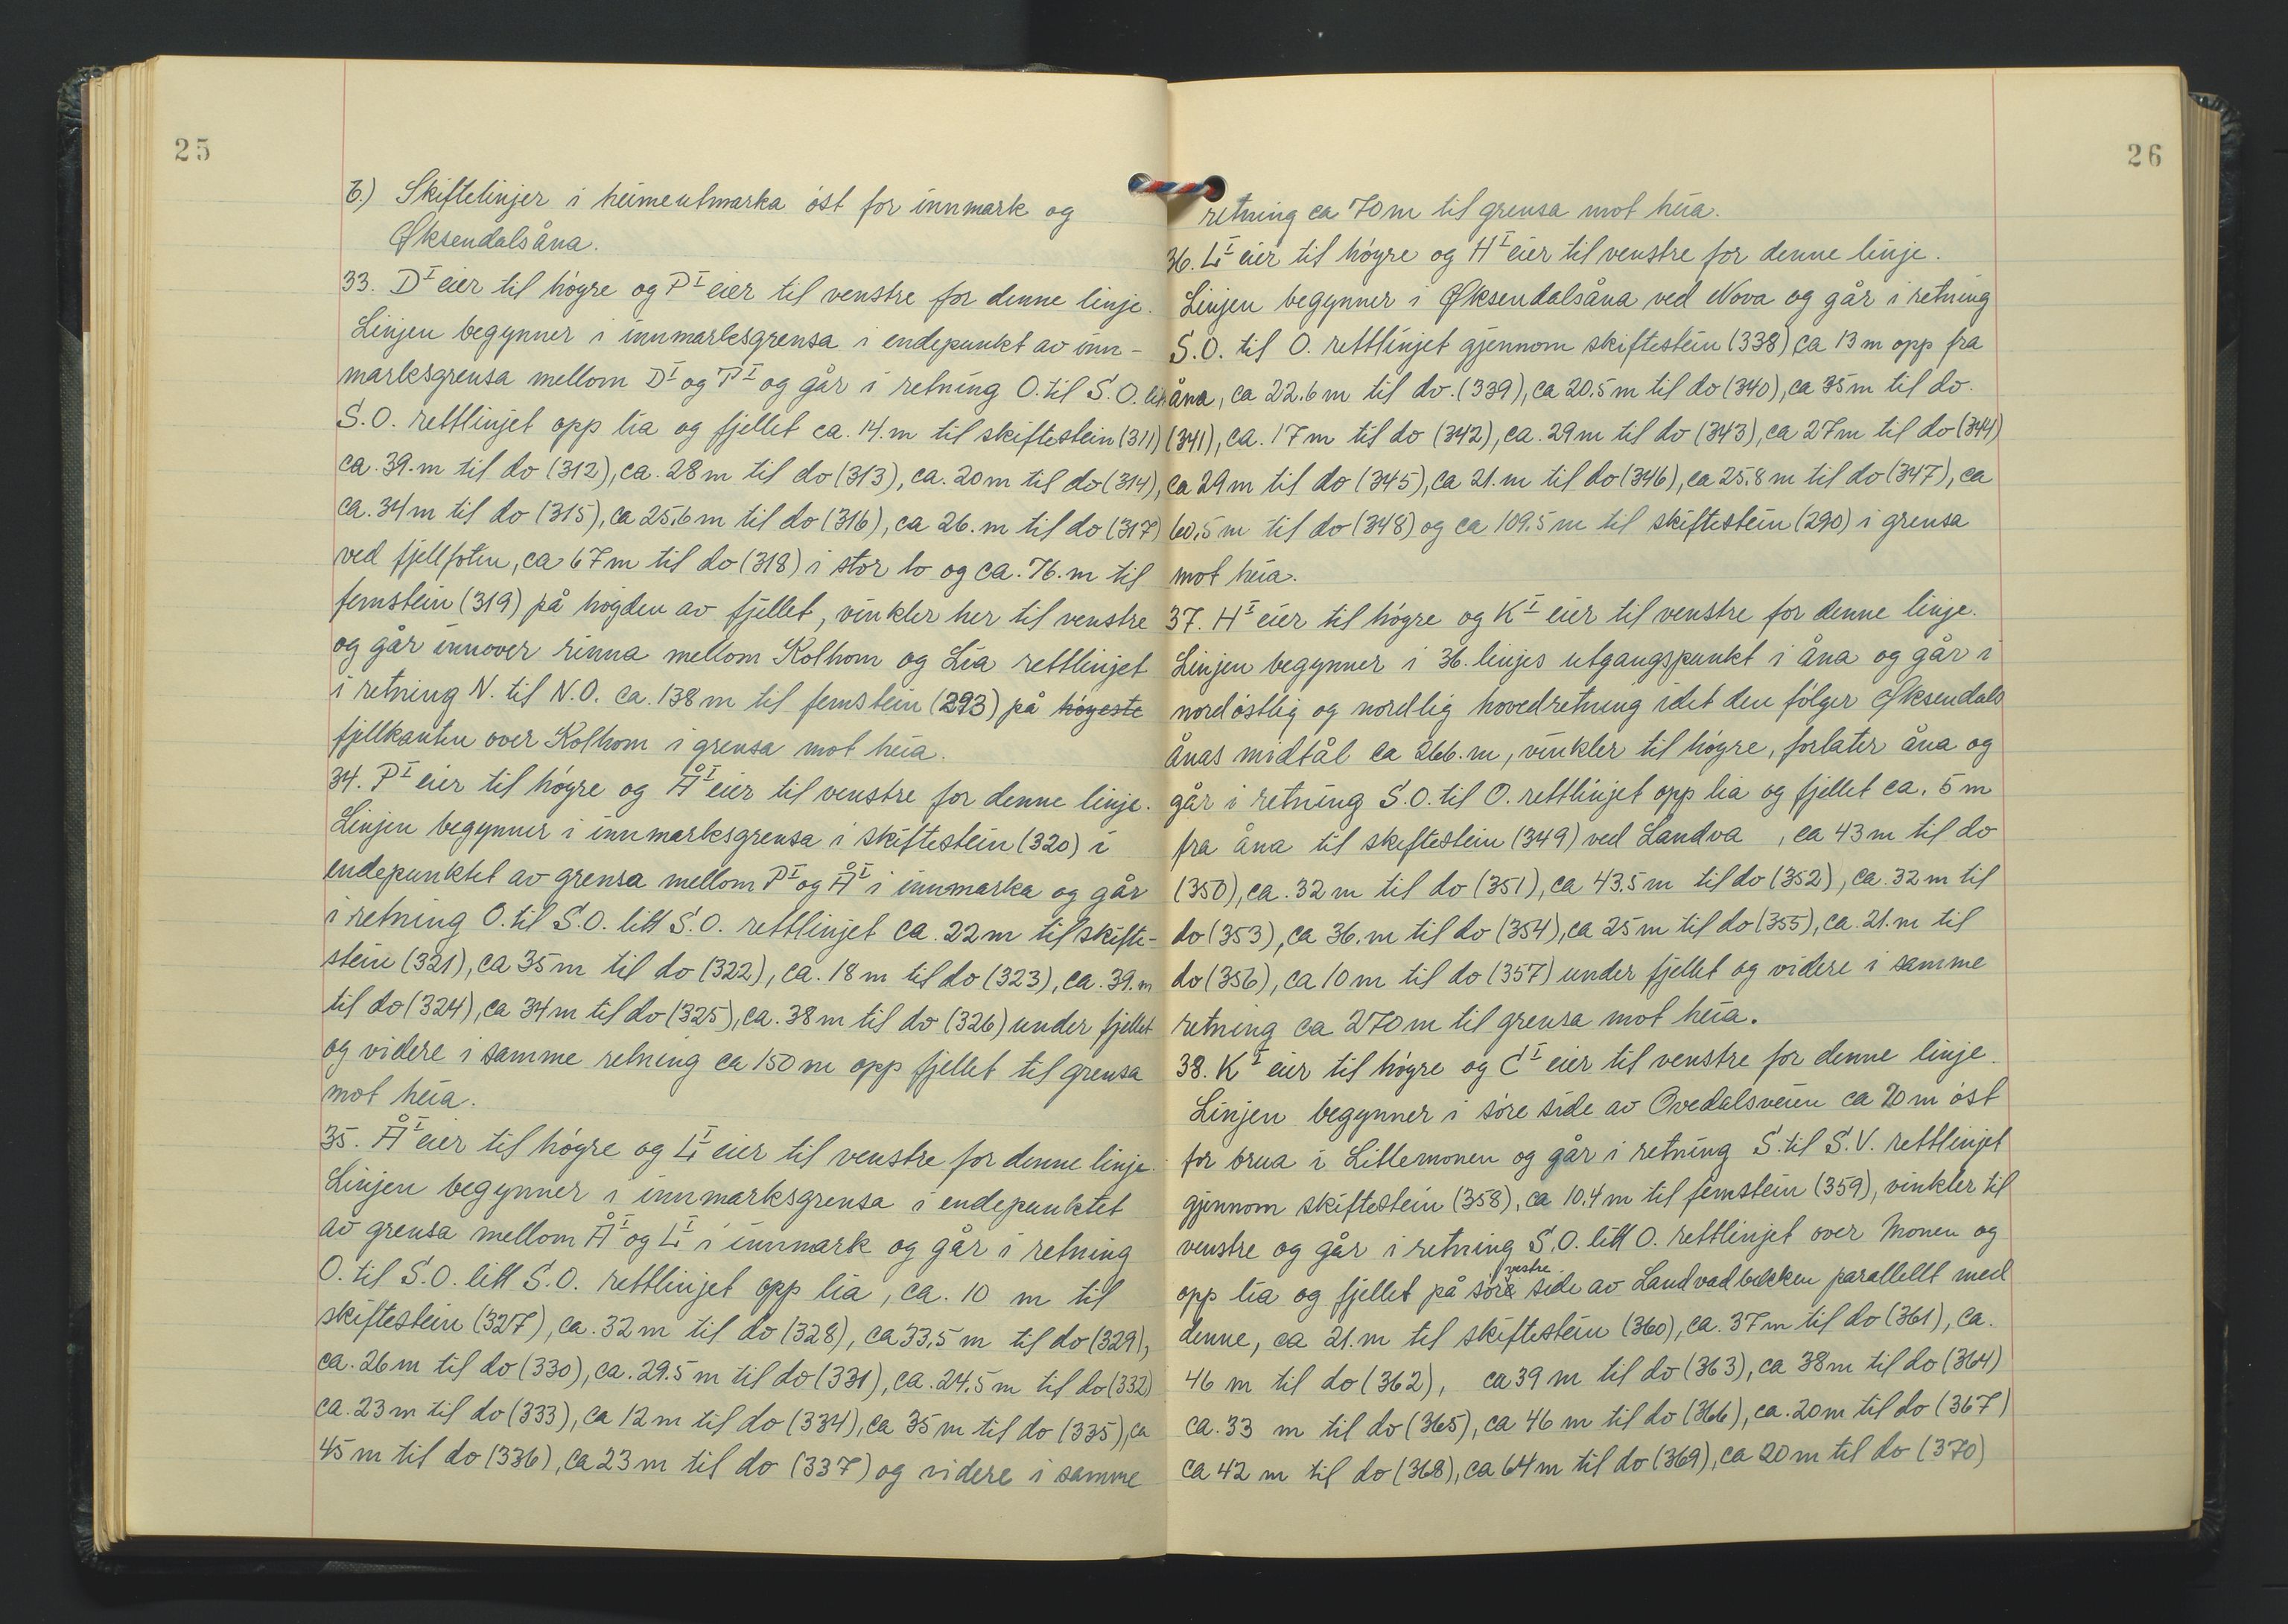 25
6.) Skiftelinjer i heimeutmarka óst for innmark og
Øksendalsåna.
33. D^I eier til hógre og P^I eier til venstre for denne linje.
Linjen begynner i innmarksgrensa i endepunkt av inn-
marksgrensa mellom D^I og P^I og går i retning O. til S.O. litt
S.O. rettlinjet opp lia og fjellet ca. 14.m til skiftestein (311)
ca. 39.m til do (312), ca. 28m til do (313), ca. 20m til do (314),
ca. 34m til do (315), ca 25,6m til do (316), ca 26.m til do (317)
ved fjellfoten, ca 67m til do (318) i stor to og ca. 76.m til
femstein (319) på hógden av fjellet, vinkler her til venstre
og går innover rinna mellom Kolhom og Lia rettlinjet
i retning N. til N.O. ca. 138m til femstein (293) på hógeste
fjellkanten over Kolhom i grensa mot heia.
34. P^I eier til hógre og Å^I eier til venstre for denne linje.
Linjen begynner i innmarksgrensa i skiftestein (320) i
endepunktet av grensa mellom P^I og Å^I i innmarka og går
i retning O. til S.O. litt S.O. rettlinjet ca. 22m til skifte-
stein (321), ca 35m til do (322), ca. 18m til do (323), ca. 39.m
til do (324), ca 34m til do (325), ca. 38m til do (326) under fjellet
og videre i samme retning ca 150m opp fjellet til grensa
mot heia.
35. Å^I eier til hógre og L^I eier til venstre for denne linje.
Linjen begynner i innmarksgrensa i endepunktet
av grensa mellom Å^I og L^I i innmark og går i retning
O. til S.O. litt S.O. rettlinjet opp lia, ca. 10 m til
skiftestein (327), ca. 32m til do (328), ca 33,5 m til do (329),
ca. 26m til do (330), ca. 29.5 m til do (331), ca. 24,5m til do (332)
ca. 23m til do (333), ca 12m til do (334), ca 35m til do (335), ca
45m til do (336), ca 23m til do (337) og videre i samme
26
retning ca 70m til grensa mot heia.
36. L^I eier til hógre og H^I eier til venstre for denne linje.
Linjen begynner i Øksendalsåna ved Nova og går i retning
S.O. til O. rettlinjet gjennom skiftestein (338) ca 13m opp fra
åna, ca 22.6m til do. (339), ca 20.5m til do (340), ca 35m til do.
(341), ca. 17m til do (342), ca. 29m til do (343), ca 27m til do (344)
ca 29m til do (345), ca 21.m til do (346), ca 25,8m til do (347), ca
60,5m til do (348) og ca 109.5m til skiftestein (290) i grensa
mot heia.
37. H^I eier til hógre og K^I eier til venstre for denne linje.
Linjen begynner i 36. linjes utgangspunkt i åna og går i
nordóstlig og nordlig hovedretning idet den fólger Øksendals
ånas midtål ca 266.m, vinkler til hógre, forlater åna og
går i retning S.O. til O. rettlinjet opp lia og fjellet ca. 5 m
fra åna til skiftestein (349) ved Landva , ca 43m til do
(350), ca. 32m til do (351), ca 43.5m til do (352), ca. 32m til
do (353), ca 36.m til do (354), ca 25m til do (355), ca. 21.m til
do (356), ca 10m til do (357) under fjellet og videre i samme
retning ca 270m til grensa mot heia.
38. K^I eier til hógre og C^I eier til venstre for denne linje.
Linjen begynner i sóre side av Ovedalsveien ca 20m óst
for brua i Litlemonen og går i retning S. til S.V. rettlinjet
gjennom skiftestein (358), ca 10.4m til femstein (359), vinkler til
venstre og går i retning S.O. litt O. rettlinjet over Monen og
vestre
opp lia og fjellet på sóre side av Landvadbekken parallellt med
denne, ca 21.m til skiftestein (360), ca. 37m til do (361), ca.
46 m til do (362), ca 39 m til do (363), ca 38m til do (364)
ca. 33 m til do (365), ca 46 m til do (366), ca. 20m til do (367)
ca 42 m til do (368), ca 64m til do (369), ca 20m til do (370)